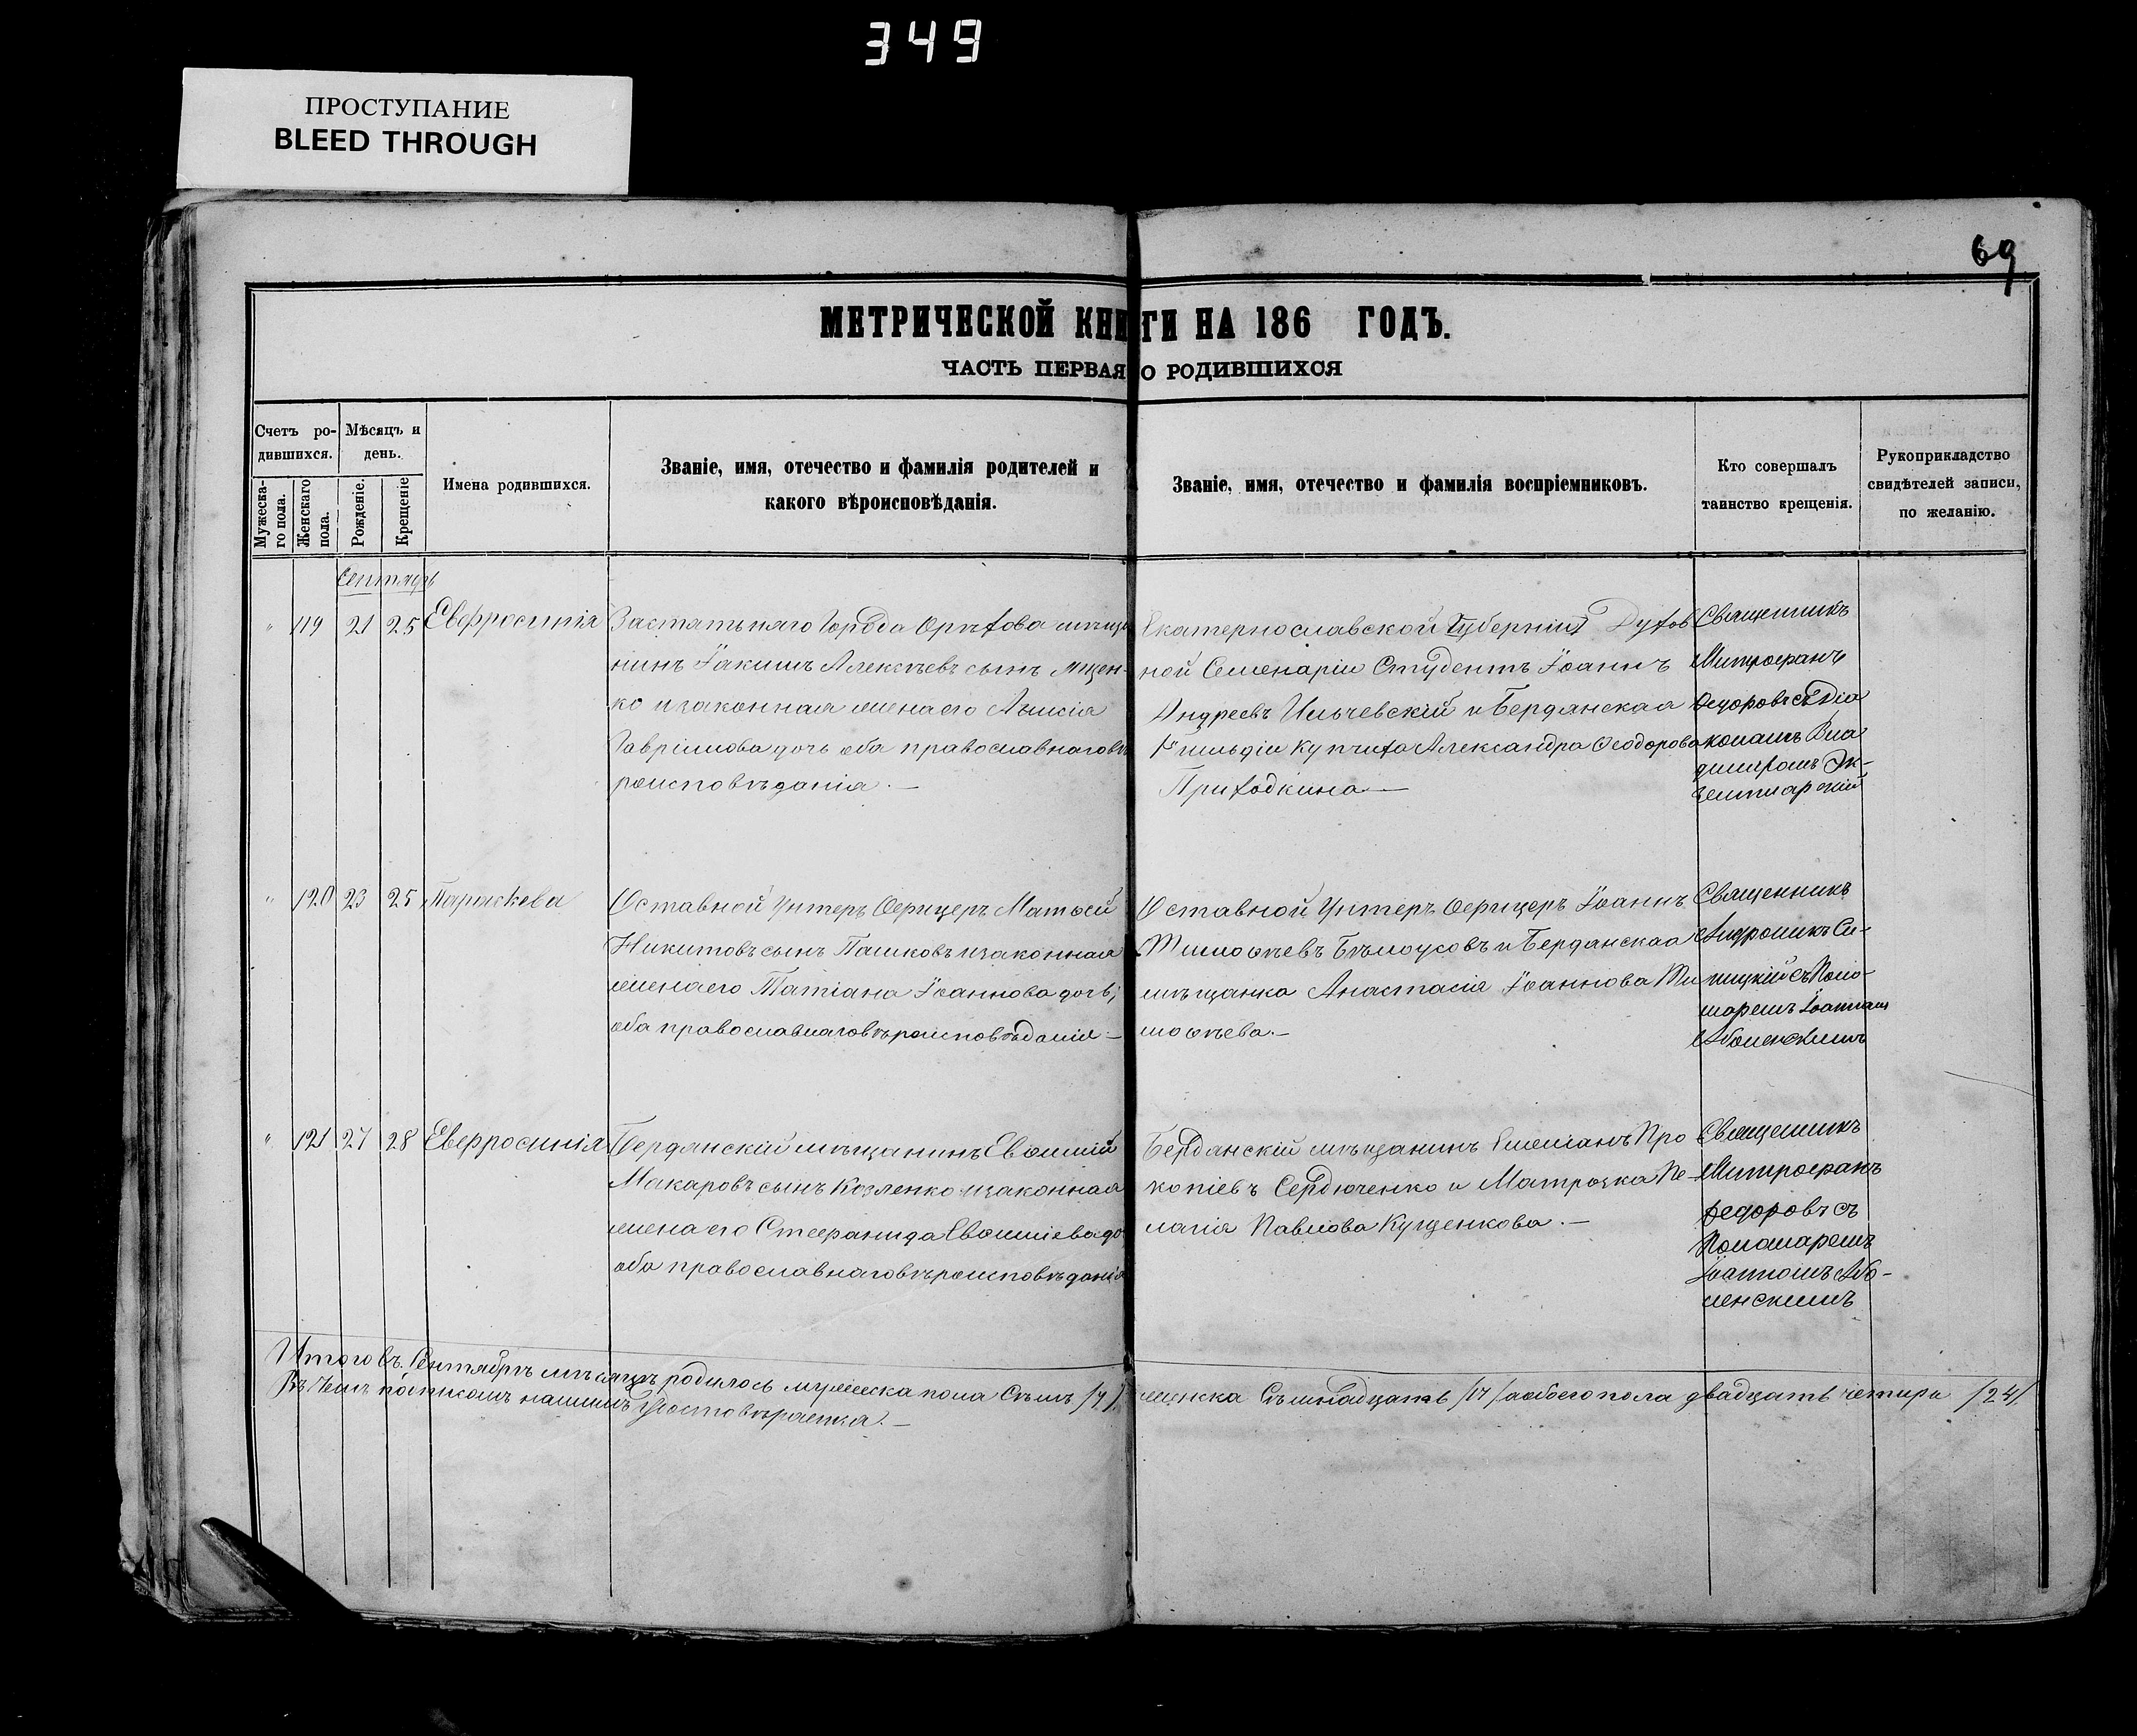 349
ПРОСТУПАНИЕ
BLEED THROUGH
69
МЕТРИЧЕСКОЙ КНИГИ НА 186 ГОДЪ.
ЧАСТЬ ПЕРВАЯ О РОДИВШИХСЯ
Счетъ ро-
дившихся.
Мѣсяцъ и
день.
Мужеска-
го пола.
Женскаго
пола.
Рожденіе.
Крещеніе
Имена родившихся.
Званіе, имя, отечество и фамилія родителей и
какого вѣроисповѣданія.
Званіе, имя, отечество и фамилія воспріемниковъ.
Кто совершалъ
таинство крещенія.
Рукоприкладство
свидѣтелей записи,
по желанію.
Сентябрь
" 119 21 25 Евфросинія
города Орѣхова мѣща
нинъ Іакимъ Алексѣевъ сынъ
ко и законная жена его
Гавріилова дочь оба православнаго вѣ
роисповѣданія. —
Екатеринославской Губерніи Духов
ной Семенаріи Студентъ Іоаннъ
Андреевъ Ильчевскій и Бердянская
гильдіи купчиха Александра Ѳеодорова
Приходкина —
Священникъ
Митрофанъ
Ѳедоровъ съ Діа
кономъ Вла
диміромъ
" 120 23 25 Параскева
Оставной Унтеръ Офицеръ Матѳей
Никитовъ сынъ Пашковъ и законная
жена его Татіана Іоаннова дочь;
оба православнаго вѣроисповѣданія —
Оставной Унтеръ Офицеръ Іоаннъ
Тимоѳѣевъ Бѣлоусовъ и Бердянская
мѣщанка Анастасія Іоаннова Ти
моѳѣева. —
Священникъ
Андроникъ Си-
ницкій съ Поно-
маремъ Іоанномъ
" 121 27 28 Евфросинія
Бердянскій мѣщанинъ Евѳимій
Макаровъ сынъ Козленко и законная
жена его Стефанида Евѳиміева до
оба православнаго вѣроисповѣданія
Бердянскій мѣщанинъ Емеліанъ Про
копіевъ Сердюченко и Матроска Пе-
лагія Павлова Кущенкова. —
Священникъ
Митрофанъ
Федоровъ съ
Пономаремъ
Іоанномъ
Итого въ Сентябрѣ мѣсяцѣ родилось мужеска пола Сѣмь /7/ женска Сѣмнадцать /17/ а обоего пола двадцать четыри /24/.